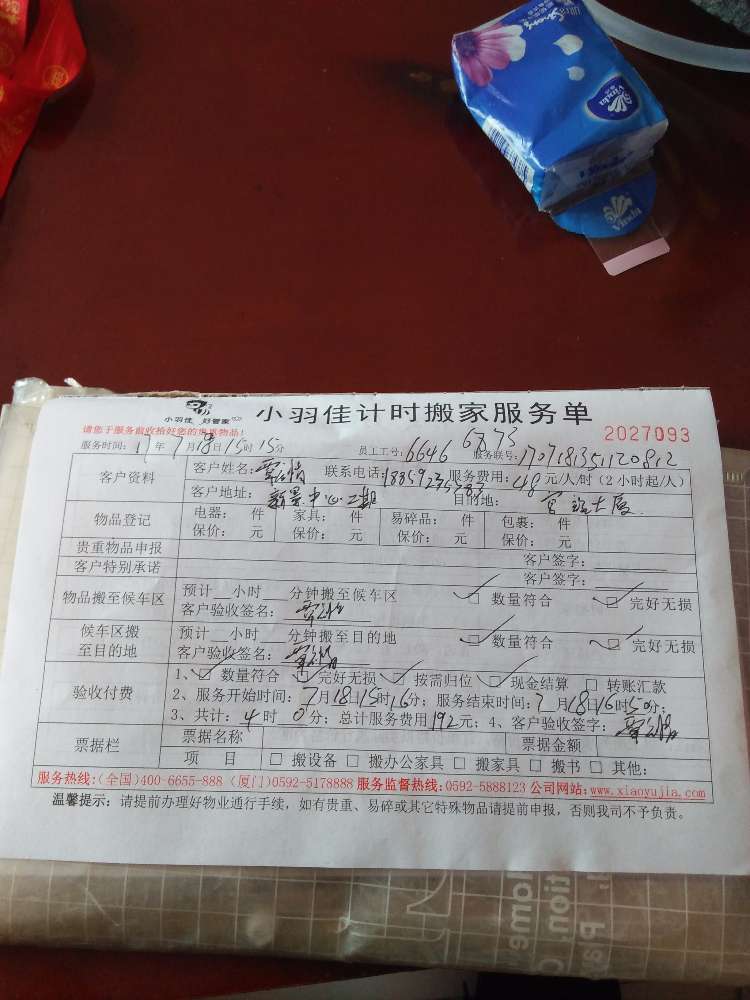 Vinda
Vinda
小羽佳 好管家 小羽佳计时搬家服务单
请您于服务前收拾好您的贵重物品!
2027093
服务时间: 17年 7月 18日 15时 15分 员工工号: 6646 6873 服务联号: 170718351120812
客户资料 客户姓名: 联系电话: 服务费用: 48 元/人/时 (2小时起/人)
客户地址: 新景中心二期 目的地:
物品登记 电器: 件 家具: 件 易碎品: 件 包裹: 件
保价: 元 保价: 元 保价: 元 保价: 元
贵重物品申报 客户签字:
客户特别承诺 客户签字:
物品搬至候车区 预计__小时__分钟搬至候车区 ☑ 数量符合 ☑ 完好无损
客户验收签名:
候车区搬至目的地 预计__小时__分钟搬至目的地 ☑ 数量符合 ☑ 完好无损
客户验收签名:
验收付费 1、☑ 数量符合 ☑ 完好无损 ☑ 按需归位 ☑ 现金结算 □ 转账汇款
2、服务开始时间: 7月18日15时16分; 服务结束时间: 7月18日16时50分;
3、共计: 4时 0分; 总计服务费用192元; 4、客户验收签字:
票据栏 票据名称 票据金额
项 目 □ 搬设备 □ 搬办公家具 □ 搬家具 □ 搬书 □ 其他:
服务热线:(全国)400-6655-888 (厦门)0592-5178888 服务监督热线:0592-5888123 公司网站:www.xiaoyujia.com
温馨提示: 请提前办理好物业通行手续, 如有贵重、易碎或其它特殊物品请提前申报, 否则我司不予负责。